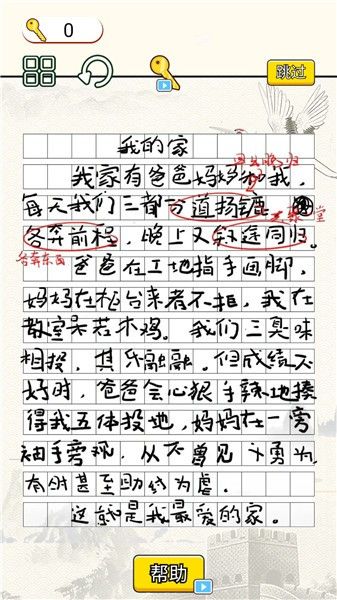 0
跳过
我的家
我家有爸爸妈妈和我,
早出晚归
每天我们三都分道扬镳
各奔前程,晚上又殊途同归。
各奔东西
爸爸在工地指手画脚,
妈妈在柜台来者不拒,我在
教室呆若木鸡。我们三臭味
相投,其乐融融。但成绩不
好时,爸爸会心狠手辣地揍
得我五体投地,妈妈在一旁
袖手旁观,从不曾见 勇为,
有时甚至助纣为虐。
这就是我最爱的家。
帮助